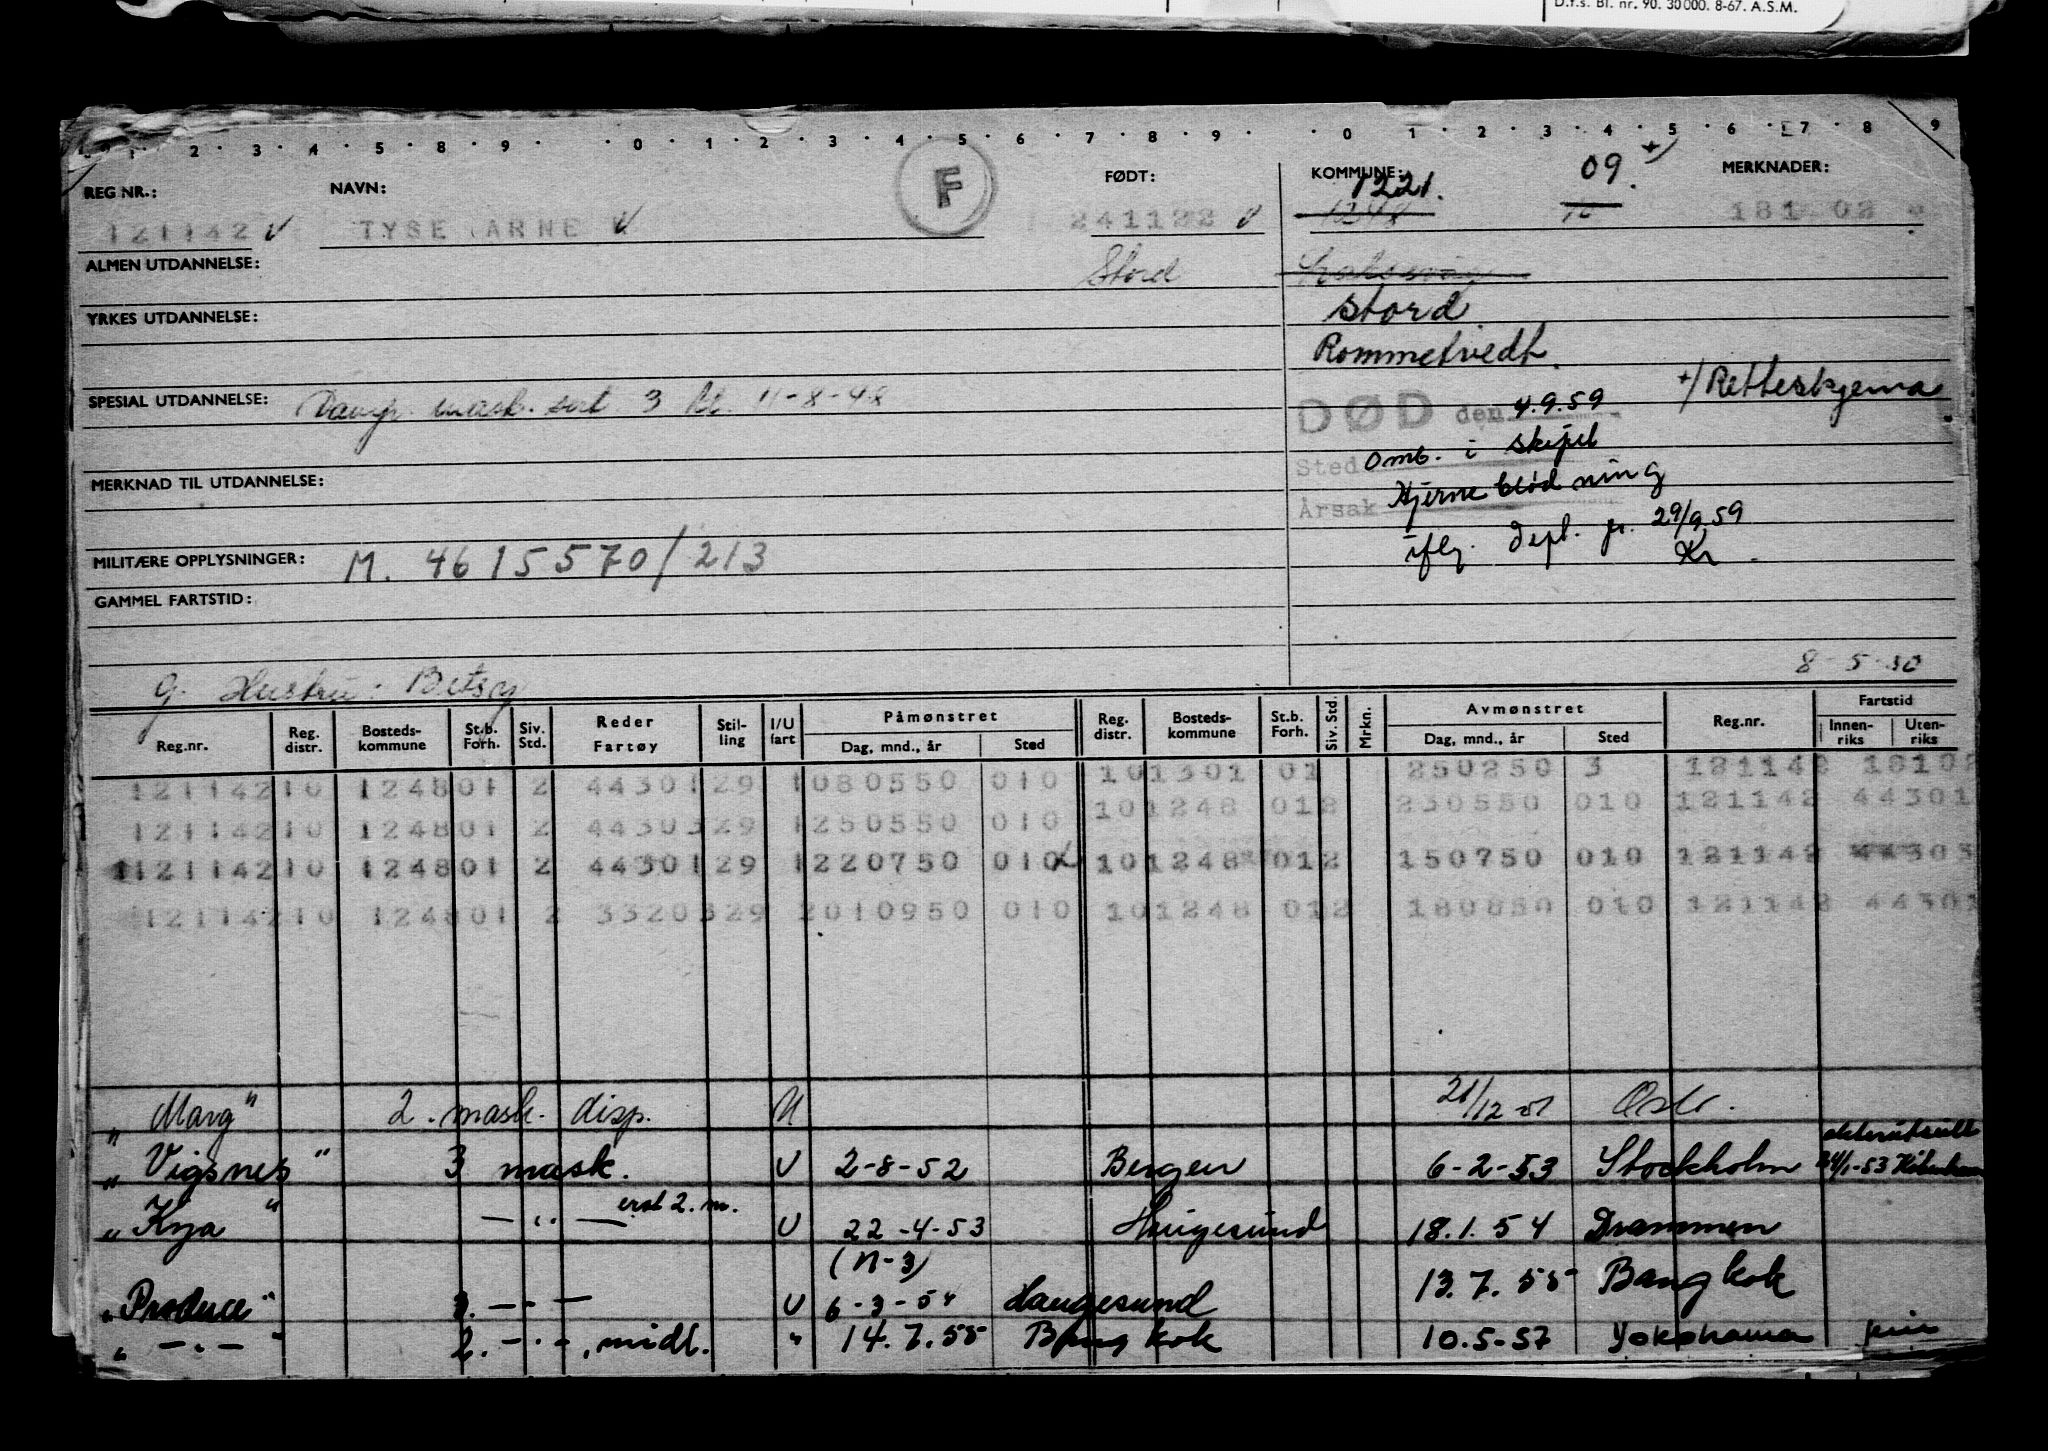 D.f.s. Bl. nr. 90. 30000. 8-67. A.S.M.
1 2 3 4 5 8 9 0 1 2 3 4 5 6 7 8 9 0 1 2 3 4 5 6 7 8 9
REG NR.: NAVN: F FØDT: KOMMUNE: 1221. 09. +/ MERKNADER:
121142 v TYSE ARNE v 241122 v 1248 10
ALMEN UTDANNELSE: Stord
YRKES UTDANNELSE: Stord
Rommetvedt.
SPESIAL UTDANNELSE: Damp. mask. sert 3 kl. 11-8-48
DØD den 4.9.59 +/ Retteskjema
MERKNAD TIL UTDANNELSE: Sted omb. i skipet
Årsak Hjerneblødning
MILITÆRE OPPLYSNINGER: M. 4615570/213 iflg. Dept. 29/9.59
Kr.
GAMMEL FARTSTID:
G. Hustru: Betsy 8-5-50
Reg.nr. Reg. distr. Bosteds- kommune St.b. Forh. Siv. Std. Reder Fartøy Stil- ling I/U fart Påmønstret Dag, mnd., år Sted Reg. distr. Bosteds- kommune St.b. Forh. Siv. Std. Mrkn. Avmønstret Dag, mnd., år Sted Reg.nr. Fartstid Innen- riks Uten- riks
121142 10 1248 01 2 44301 29 1 080550 010 10 1301 01 250250 3 121142 18102
121142 10 1248 01 2 44303 29 1 250550 010 10 1248 01 2 230550 010 121142 44301
121142 10 1248 01 2 44301 29 1 220750 010 10 1248 01 2 150750 010 121142 44303
121142 10 1248 01 2 33203 29 2 010950 010 10 1248 01 2 180850 010 121142 44301
"Marg" 2. mask. disp. U 21/12 51 Oslo.
"Vigsnes" 3 mask. U 2-8-52 Bergen 6-2-53 Stockholm
"Kya" — " — erst 2. m. U 22-4-53 Haugesund 18.1.54 Drammen
(N-3)
"Produce" 3. — " — U 6-3-54 Haugesund 13.7.55 Bangkok
" — " — " 2. — " —, midl. " 14.7.55 Bangkok 10.5-57 Yokohama